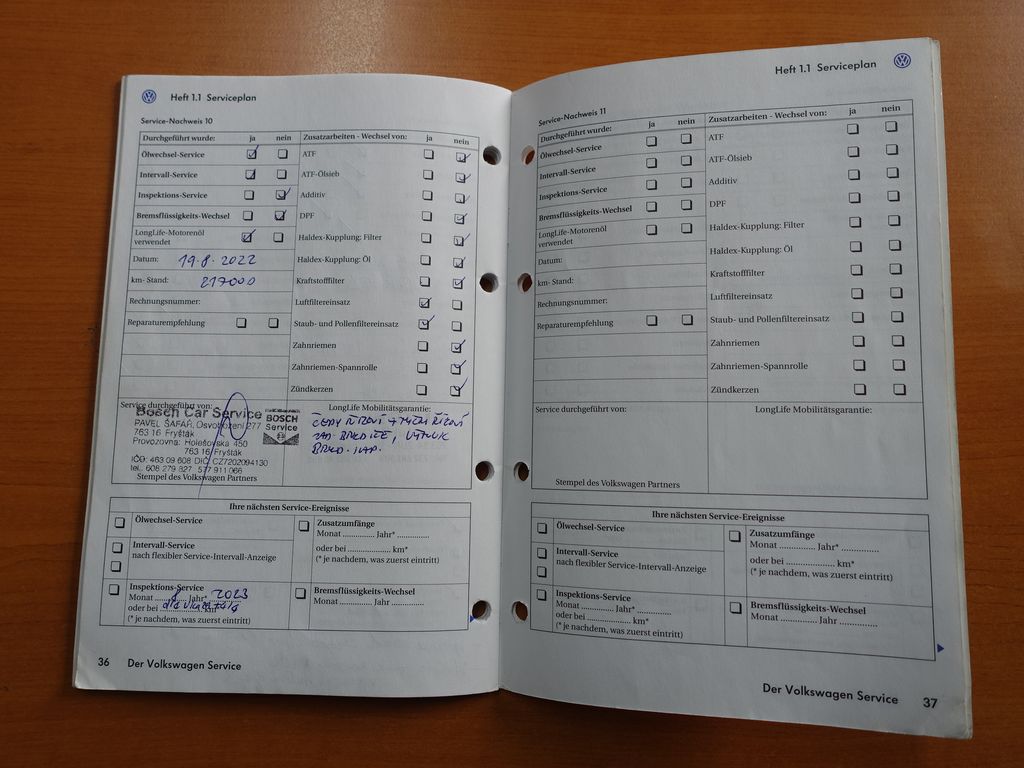 Heft 1.1 Serviceplan
Service-Nachweis 10
Durchgeführt wurde: ja nein
Ölwechsel-Service
Intervall-Service
Inspektions-Service
Bremsflüssigkeits-Wechsel
LongLife-Motorenöl
verwendet
Datum: 19.8.2022
km- Stand: 217000
Rechnungsnummer:
Reparaturempfehlung
Zusatzarbeiten - Wechsel von: ja nein
ATF
ATF-Ölsieb
Additiv
DPF
Haldex-Kupplung: Filter
Haldex-Kupplung: Öl
Kraftstofffilter
Luftfiltereinsatz
Staub- und Pollenfiltereinsatz
Zahnriemen
Zahnriemen-Spannrolle
Zündkerzen
Service durchgeführt von:
Bosch Car Service
PAVEL ŠAFÁŘ, Osvobození 277
763 16 Fryšták
Provozovna: Holešovská 450
763 16 Fryšták
IČO: 463 09 608 DIČ: CZ7202094130
tel.: 608 279 827 577 911 066
BOSCH
Service
Stempel des Volkswagen Partners
LongLife Mobilitätsgarantie:
ČEPY ŘÍZENÍ + TYČE ŘÍZENÍ
ZAD.
Ihre nächsten Service-Ereignisse
Ölwechsel-Service
Intervall-Service
nach flexibler Service-Intervall-Anzeige
Inspektions-Service
Monat 8 Jahr* 2023
oder bei km*
(* je nachdem, was zuerst eintritt)
Zusatzumfänge
Monat .............. Jahr* ..............
oder bei .............. km*
(* je nachdem, was zuerst eintritt)
Bremsflüssigkeits-Wechsel
Monat .............. Jahr ..............
36 Der Volkswagen Service
Heft 1.1 Serviceplan
Service-Nachweis 11
Durchgeführt wurde: ja nein
Ölwechsel-Service
Intervall-Service
Inspektions-Service
Bremsflüssigkeits-Wechsel
LongLife-Motorenöl
verwendet
Datum:
km- Stand:
Rechnungsnummer:
Reparaturempfehlung
Zusatzarbeiten - Wechsel von: ja nein
ATF
ATF-Ölsieb
Additiv
DPF
Haldex-Kupplung: Filter
Haldex-Kupplung: Öl
Kraftstofffilter
Luftfiltereinsatz
Staub- und Pollenfiltereinsatz
Zahnriemen
Zahnriemen-Spannrolle
Zündkerzen
Service durchgeführt von:
Stempel des Volkswagen Partners
LongLife Mobilitätsgarantie:
Ihre nächsten Service-Ereignisse
Ölwechsel-Service
Intervall-Service
nach flexibler Service-Intervall-Anzeige
Inspektions-Service
Monat .............. Jahr* ..............
oder bei .............. km*
(* je nachdem, was zuerst eintritt)
Zusatzumfänge
Monat .............. Jahr* ..............
oder bei .............. km*
(* je nachdem, was zuerst eintritt)
Bremsflüssigkeits-Wechsel
Monat .............. Jahr ..............
Der Volkswagen Service 37